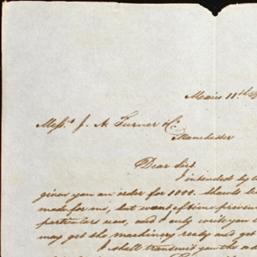 Mairie 11th
Mess.rs J. A. Turner & Co.
Manchester
Dear Sirs
I intended by
given you an order for 1000. shawls
made for me, but want of time
particulars now, and I only write you
may get the machinery ready and get
I shall transmit you the